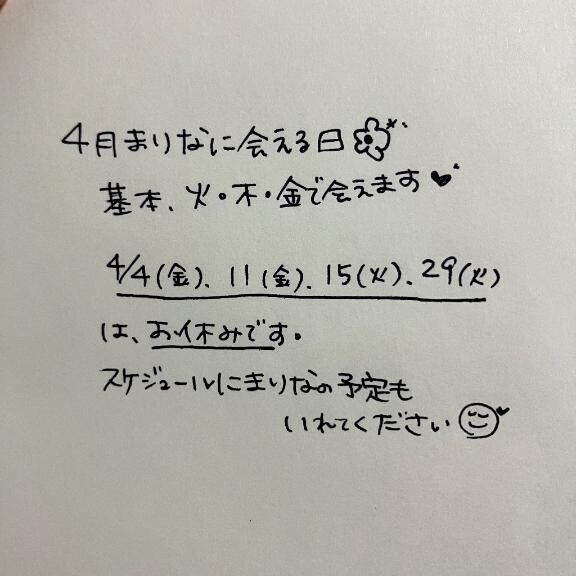 4月まりなに会える日
基本、火・木・金で会えます♥
4/4(金)、11(金)、15(火)、29(火)
は、お休みです。
スケジュールにまりなの予定も
いれてください